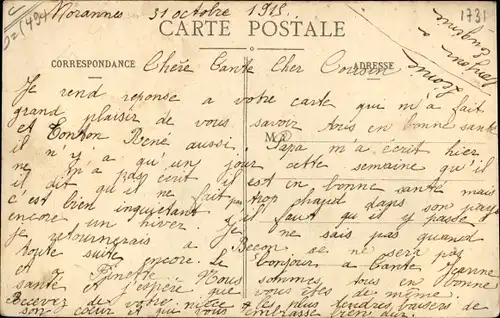 Morannes 31 octobre 1915.
1731
CARTE POSTALE
CORRESPONDANCE
ADRESSE
Chère Tante Cher Cousin
Je rend reponse a votre carte que m'a fait
grand plaisir de vous savoir tous en bonne santé
et Tonton René aussi. Papa m'a ecrit hier
il n'y a qu'un jour cette semaine qu'il
ne m'a pas ecrit il est en bonne santé mais
il dit qu'il ne fait pas trop chaud dans son pays
c'est bien inquietant s'il faut qu'il y passe
encore un hiver. Je ne sais pas quand
je retournerais a Becon se ne sera pas
toute suite encore. Le bonjour a Tante Jeanne
et Ginette. Nous sommes tous en bonne
santé et j'espère que vous êtes de même.
Recevez de votre nièce les plus tendres baisers de
son coeur et qui vous embrasse bien